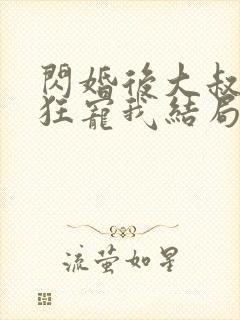 閃婚後大叔
狂寵我結局
流螢如星